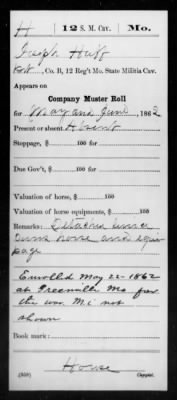 H 12 S. M. Cav. Mo.
Joseph Huff
Pvt, Co. B, 12 Reg't Mo. State Militia Cav.
Appears on
Company Muster Roll
for May and June, 1862
Present or absent Absent
Stoppage, $ 100 for
Due Gov't, $ 100
Valuation of horse, $ 100
Valuation of horse equipments, $ 100
Remarks: Detached service
Owns horse and equip
page
Enrolled May 22 1862
at Greenville Mo for
the war. M. i. not
shown
Book mark:
House
(358) Copyist.